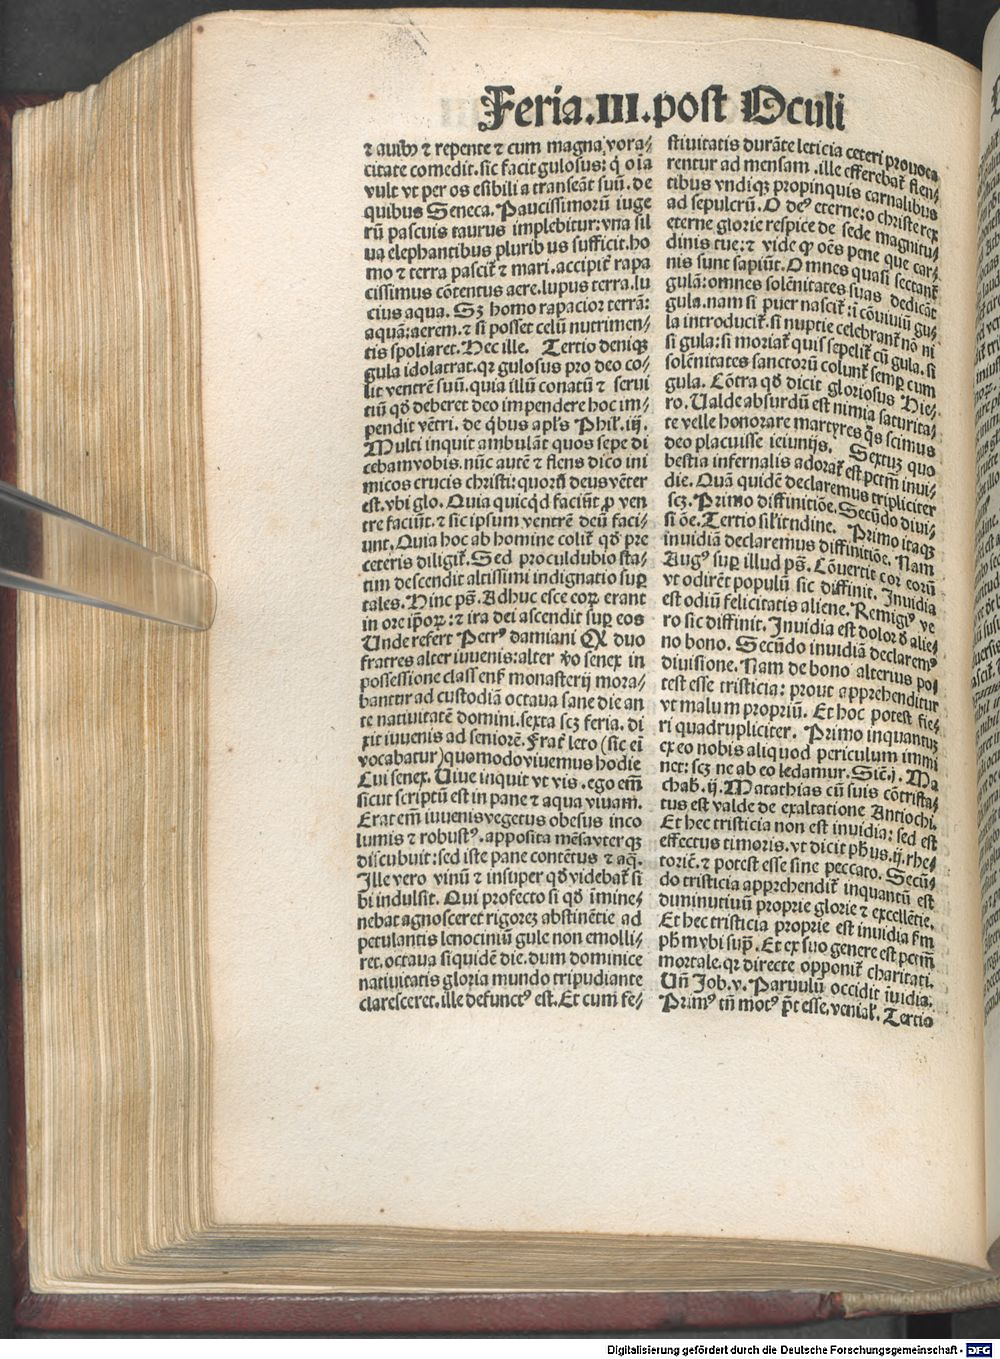 Feria.III.post Oculi
⁊ auibꝰ ⁊ repente ⁊ cum magna vora⸗
citate comedit. sic facit gulosus: q̇ oīa
vult vt per os esibilia transeāt suū. de
quibus Seneca. Paucissimorū iuge
rū pascuis taurus implebitur: vna sil
ua elephantibus pluribus sufficit. ho
mo ⁊ terra pascit̄ ⁊ mari. accipit̄ rapa
cissimus cōtentus aere. lupus terra. lu
cius aqua. Sꝫ homo rapacior terrā:
aquā: aerem. ⁊ si posset celū nutrimen⸗
tis spoliaret. Hec ille. Tertio deniqꝫ
gula idolatrat. qꝛ gulosus pro deo co⸗
lit ventrē suū. quia illū conatū ⁊ serui
tiū qd̄ deberet deo impendere hoc im⸗
pendit vētri. de q̇bus apl̄s Phil̄. iij.
Multi inquit ambulāt quos sepe di
cebam vobis. nūc autē ⁊ flens dico ini
micos crucis christi: quorū deus vēter
est. vbi glo. Quia quicq̇d faciūt ꝓ ven
tre faciūt. ⁊ sic ipsum ventrē deū faci⸗
unt. Quia hoc ab homine colit̄ qd̄ pre
ceteris diligit̄. Sed proculdubio sta⸗
tim descendit altissimi indignatio suꝑ
tales. Hinc ps̄. Adhuc esce eoꝝ erant
in ore ip̄oꝝ: ⁊ ira dei ascendit suꝑ eos
Unde refert Petrꝰ damiani Ꝙ duo
fratres alter iuuenis: alter ꝟo senex in
possessione classen̄ monasterij mora⸗
bantur ad custodiā octaua sane die an
te natiuitatē domini. sexta scꝫ feria. di
xit iuuenis ad seniorē. Frat̄ leto (sic ei̅
vocabatur) quomodo viuemus hodie
Cui senex. Uiue inquit vt vis. ego em̄
sicut scriptū est in pane ⁊ aqua viuam.
Erat em̄ iuuenis vegetus obesus inco
lumis ⁊ robustꝰ. apposita mēsa vterqꝫ
discubuit: sed iste pane contētus ⁊ aq̄.
Ille vero vinū ⁊ insuper qd̄ videbat̄ si
bi indulsit. Qui profecto si qd̄ īmine⸗
nebat agnosceret rigoreꝫ abstinētie ad
petulantis lenociniū gule non emolli⸗
ret. octaua siquidē die. dum dominice
natiuitatis gloria mundo tripudiante
claresceret. ille defunctꝰ est. Et cum fe⸗
stiuitatis durāte leticia ceteri prouoca
rentur ad mensam. ille efferebat̄ flen⸗
tibus vndiqꝫ propinquis carnalibus
ad sepulcrū. O deꝰ eterne: o christe rex
eterne glorie respice de sede magnitu⸗
dinis tue: ⁊ vide ꝙ oēs pene que car⸗
nis sunt sapiūt. Omnes quasi sectant̄
gulā: omnes solēnitates suas dedicāt
gula. nam si puer nascit̄: ī cōuiuiū gu⸗
la introducit̄. si nuptie celebrant̄ nō ni
si gula: si moriat̄ quis sepelit̄ cū gula. si
solēnitates sanctorū colunt̄ semꝑ cum
gula. Cōtra qd̄ dicit gloriosus Hie⸗
ro. Ualde absurdū est nimia saturita⸗
te velle honorare martyres q̇s scimus
deo placuisse ieiunijs. Sextuꝫ quo
bestia infernalis adorat̄ est pctm̄ inui⸗
die. Quā quidē declaremus tripliciter
scꝫ. Primo diffinitiōe. Secūdo diui⸗
siōe. Tertio sil̄itudine. Primo itaqꝫ
inuidiā declaremus diffinitiōe. Nam
Augꝰ suꝑ illud ps̄. Cōuertit cor eorū
vt odirēt populū sic diffinit. Inuidia
est odiū felicitatis aliene. Remigiꝰ ve
ro sic diffinit. Inuidia est dolor ď alie⸗
no bono. Secūdo inuidiā declaremꝰ
diuisione. Nam de bono alterius po⸗
test esse tristicia: prout apprehenditur
vt malum propriū. Et hoc potest fie⸗
ri quadrupliciter. Primo inquantuꝫ
ex eo nobis aliquod periculum immi
net: scꝫ ne ab eo ledamur. Sic̄. j. Ma
chab. ij. Matathias cū suis cōtrista⸗
tus est valde de exaltatione Antiochi.
Et hec tristicia non est inuidia: sed est
effectus timoris. vt dicit ph̄us. ij. rhe⸗
toric̄. ⁊ potest esse sine peccato. Secū⸗
do tristicia apprehendit̄ inquantū est
diminutiuū proprie glorie ⁊ excellētie.
Et hec tristicia proprie est inuidia ẜm
ph̄m vbi sup̄. Et ex suo genere est pctm̄
mortale. qꝛ directe opponit̄ charitati.
Un̄ Job. v. Paruulū occidit īuidia.
Primꝰ tn̄ motꝰ p̄t esse. venial̄. Tertio
Digitalisierung gefördert durch die Deutsche Forschungsgemeinschaft - DFG